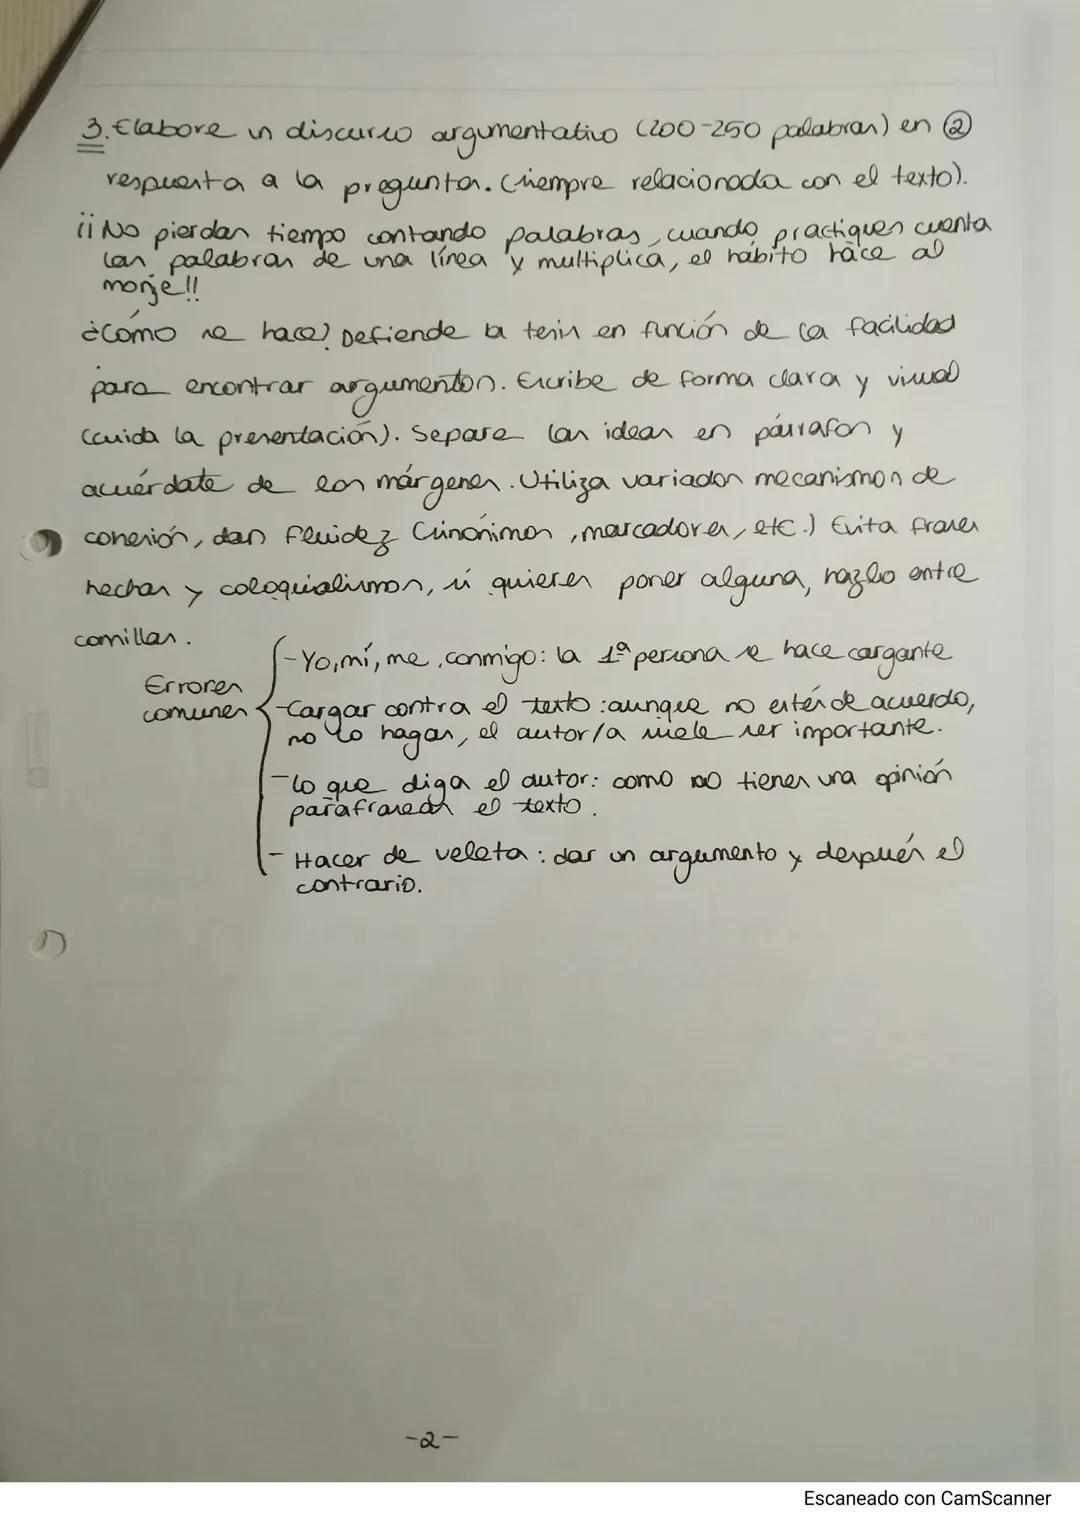 3. Elabore un discurso argumentativo (200-250 palabras) en ②
respuesta a la pregunta. (siempre relacionada con el texto).
¡¡No pierdan tiempo contando palabras, cuando practiques cuenta
las palabras de una línea y multiplica, el hábito hace al
monje!!
¿Cómo se hace? Defiende la tesis en función de la facilidad
para encontrar argumentos. Escribe de forma clara y visual
(cuida la presentación). Separa las ideas en párrafos y
acuérdate de los márgenes. Utiliza variados mecanismos de
cohesión, dan fluidez (sinónimos, marcadores, etc.) Evita frases
hechas y coloquialismos, si quieres poner alguna, hazlo entre
comillas.
Errores comunes
- Yo, mí, me, conmigo: la 1ª persona se hace cargante
- Cargar contra el texto: aunque no estés de acuerdo,
no lo hagas, el autor/a suele ser importante.
- Lo que diga el autor: como no tienes una opinión
parafraseas el texto.
- Hacer de veleta: dar un argumento y después el
contrario.
-2-
Escaneado con CamScanner